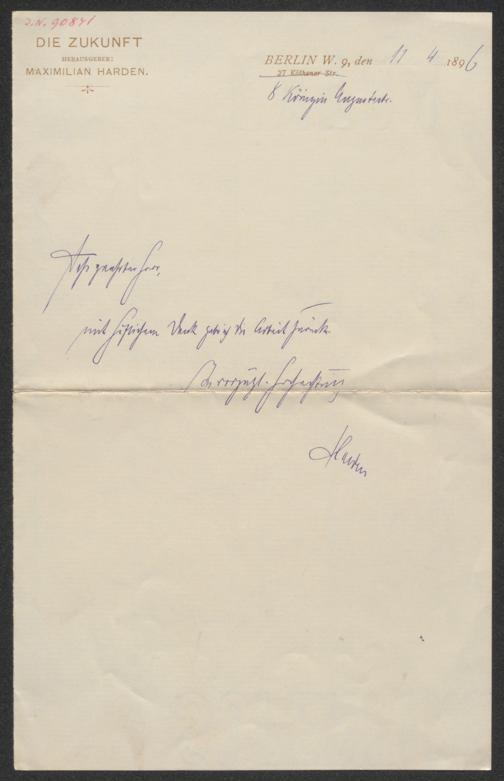 J.N. 90871
DIE ZUKUNFT
HERAUSGEBER:
MAXIMILIAN HARDEN.
BERLIN W. 9, den 11 4 1896
37 Köthener Str.
8 Königin Augustastr.
Sehr geehrter Herr,
mit höflichem Dank gebe ich die Arbeit zurück.
In vorzügl. Hochachtung
Harden